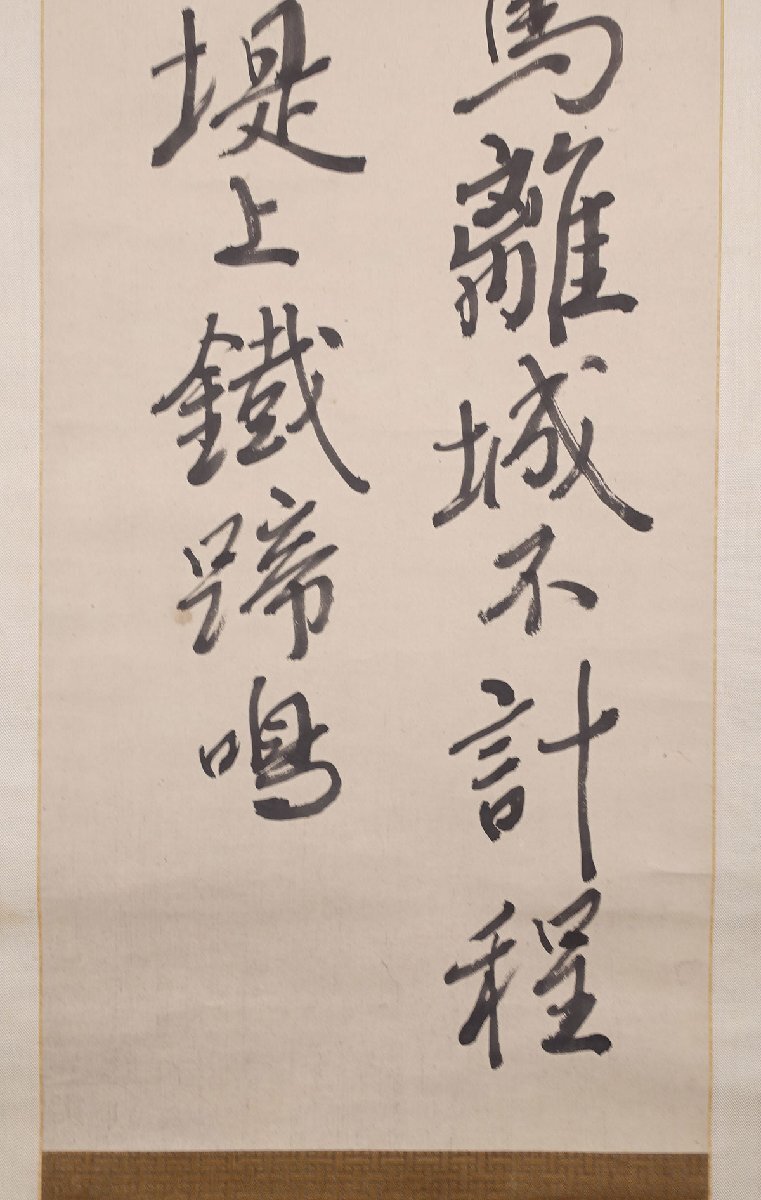 馬離城不計程
堤上鐵蹄鳴